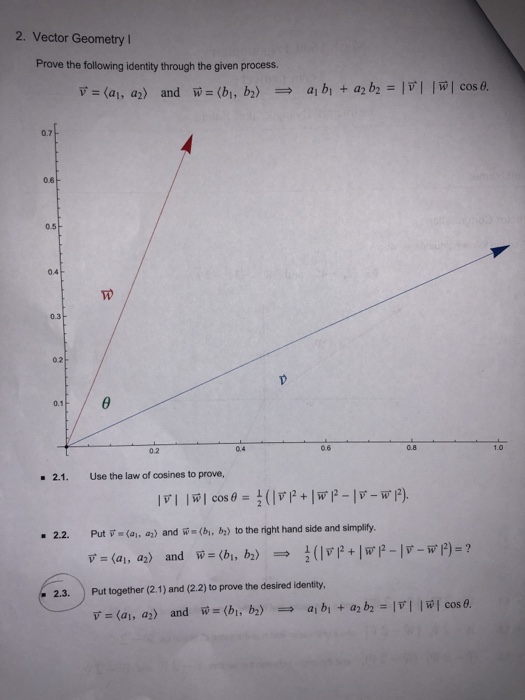 2. Vector Geometry I
Prove the following identity through the given process.
v⃗ = ⟨a₁, a₂⟩ and w⃗ = ⟨b₁, b₂⟩ ⟹ a₁ b₁ + a₂ b₂ = |v⃗| |w⃗| cos θ.
0.7
0.6
0.5
0.4
w⃗
0.3
0.2
v⃗
0.1
θ
0.2 0.4 0.6 0.8 1.0
▪ 2.1. Use the law of cosines to prove,
|v⃗| |w⃗| cos θ = ½ (|v⃗|² + |w⃗|² − |v⃗ − w⃗|²).
▪ 2.2. Put v⃗ = ⟨a₁, a₂⟩ and w⃗ = ⟨b₁, b₂⟩ to the right hand side and simplify.
v⃗ = ⟨a₁, a₂⟩ and w⃗ = ⟨b₁, b₂⟩ ⟹ ½ (|v⃗|² + |w⃗|² − |v⃗ − w⃗|²) = ?
▪ 2.3. Put together (2.1) and (2.2) to prove the desired identity,
v⃗ = ⟨a₁, a₂⟩ and w⃗ = ⟨b₁, b₂⟩ ⟹ a₁ b₁ + a₂ b₂ = |v⃗| |w⃗| cos θ.